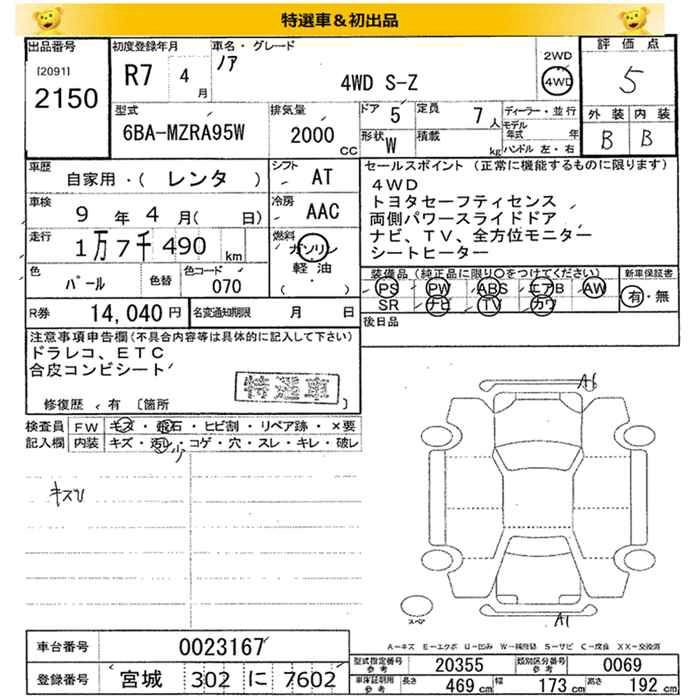 特選車＆初出品
出品番号
[2091]
2150
初度登録年月
R7 4月
車名・グレード
ノア
4WD S-Z
2WD
4WD
評価点
5
外装 内装
B B
型式
6BA-MZRA95W
排気量
2000 CC
ドア 5
形状 W
定員 7人
積載 kg
ディーラー・並行
モデル年式 年
ハンドル 左・右
車歴
自家用・( レンタ )
シフト AT
車検 9年4月( 日)
冷房 AAC
走行 1万7千490km
燃料
ガソリン
軽油
( ・ )
色 パール 色替 色コード 070
R券 14,040円 名変通知期限 月 日
セールスポイント(正常に機能するものに限ります)
4WD
トヨタセーフティセンス
両側パワースライドドア
ナビ、TV、全方位モニター
シートヒーター
装備品(純正品に限り○をつけてください)
PS PW ABS エアB AW
SR ナビ TV カワ
新車保証書
有・無
後日品
注意事項申告欄(不具合内容等は具体的に記入して下さい)
ドラレコ、ETC
合皮コンビシート
特選車
修復歴 有 [箇所
検査員記入欄
FW キズ・飛石・ヒビ割・リペア跡・×要
内装 キズ・汚レ・コゲ・穴・スレ・キレ・破レ
少
キズU
A6
A1
スペア
A=キズ E=エクボ U=凹み W=補修跡 S=サビ C=腐食 XX=交換済
車台番号 0023167
登録番号 宮城 302 に 7602
型式指定番号 参考 20355 類別区分番号 参考 0069
車庫証明用 参考 長さ 469cm 幅 173cm 高さ 192cm